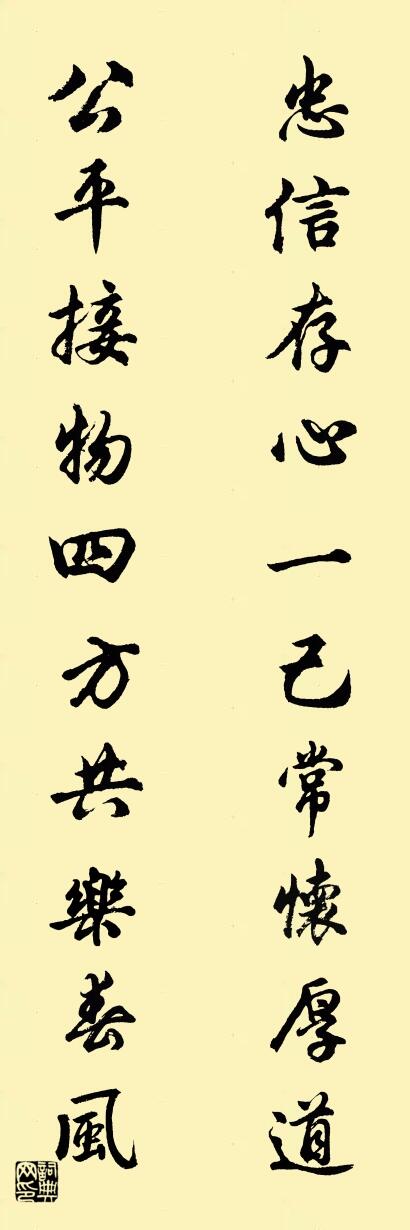 忠信存心一己常懷厚道
公平接物四方共樂春風
詞典网印